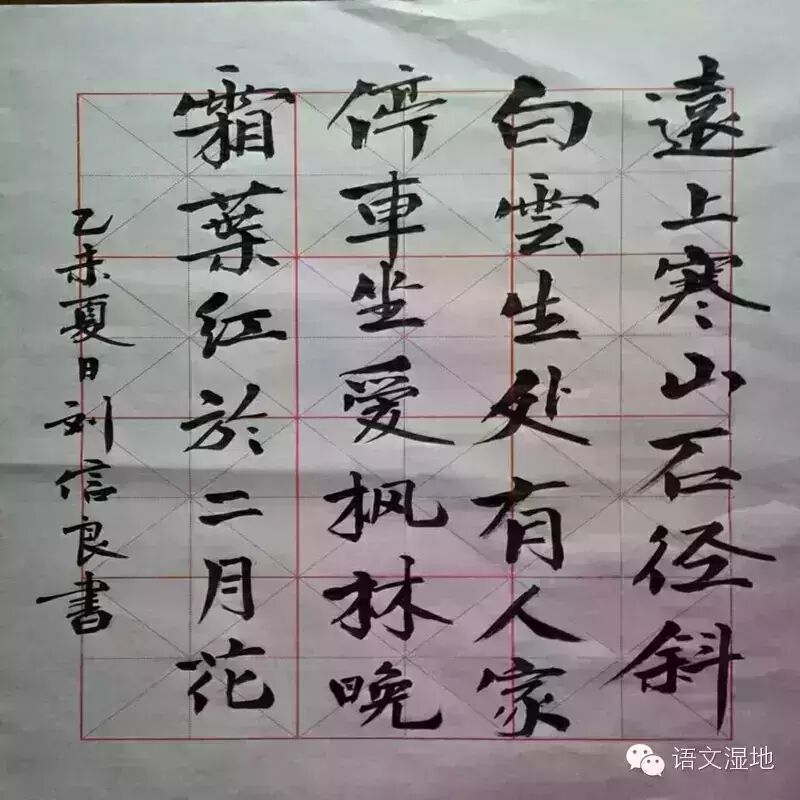 遠上寒山石径斜
白雲生处有人家
停車坐愛枫林晚
霜葉红於二月花
乙未夏日刘信良書
语文湿地